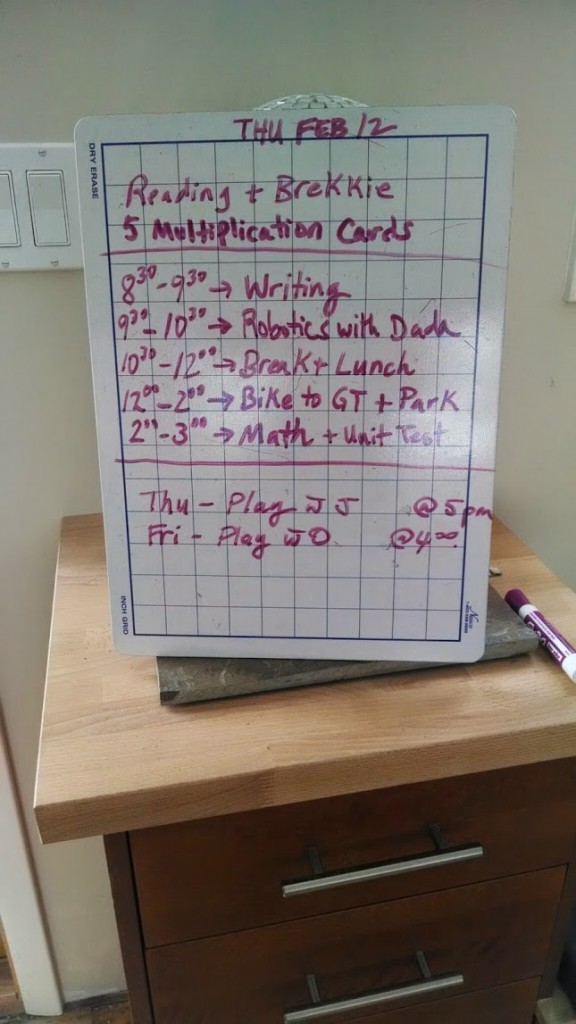 THU FEB 12
DRY ERASE
Reading + Brekkie
5 Multiplication Cards
8:30-9:30 → Writing
9:30-10:30 → Robotics with Dada
10:30-12:00 → Break + Lunch
12:00-2:00 → Bike to GT + Park
2:00-3:00 → Math + Unit Test
Thu - Play w J @ 5pm
Fri - Play w O @ 4:00
INCH GRID